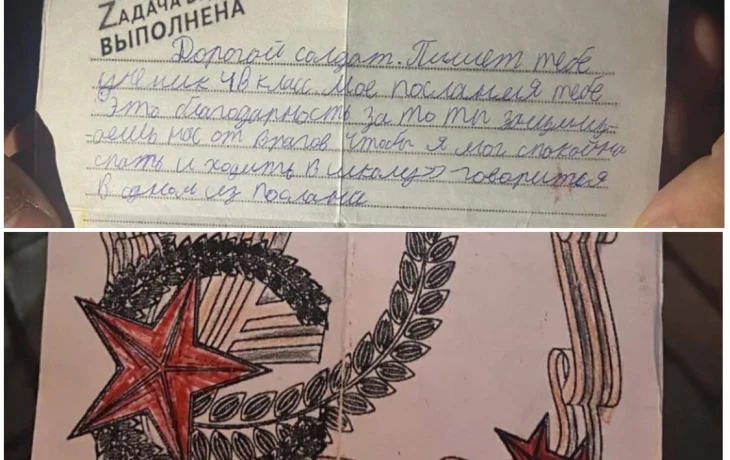 ZАДАЧА
ВЫПОЛНЕНА
Дорогой солдат. Пишет тебе
ученик 4В класс. Мое посланеия тебе
Это благодарность за то ты защищ-
аешь нас от врагов чтобы я мог спокойна
спать и ходить в школу» говорится
в одном из послани